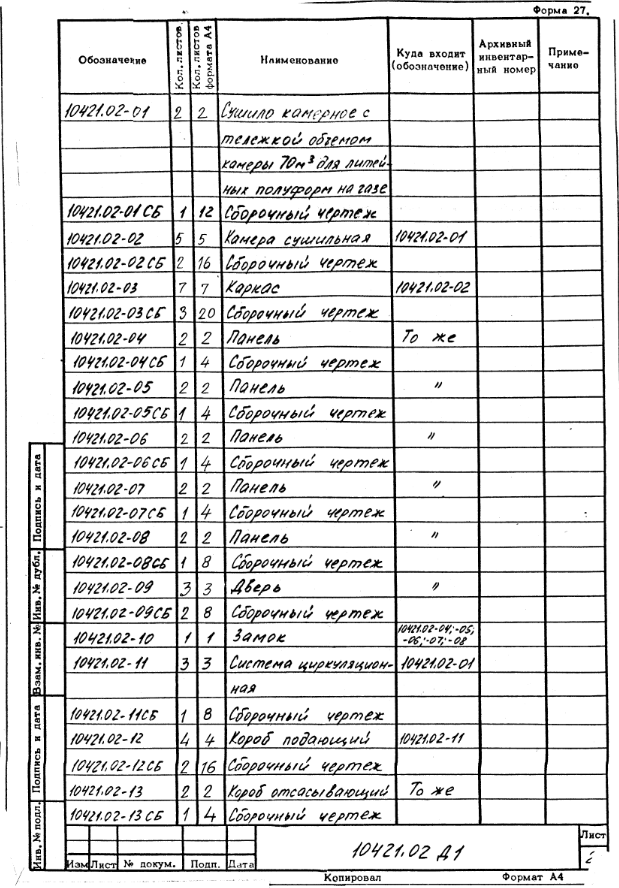 Форма 27.
Обозначение Кол. листов Кол. листов формата А4 Наименование Куда входит (обозначение) Архивный инвентар-ный номер Приме-чание
10421.02-01 2 2 Сушило камерное с
тележкой объемом
камеры 70м³ для литей-
ных полуформ на газе
10421.02-01СБ 1 12 Сборочный чертеж
10421.02-02 5 5 Камера сушильная 10421.02-01
10421.02-02СБ 2 16 Сборочный чертеж
10421.02-03 7 7 Каркас 10421.02-02
10421.02-03СБ 3 20 Сборочный чертеж
10421.02-04 2 2 Панель То же
10421.02-04СБ 1 4 Сборочный чертеж
10421.02-05 2 2 Панель "
10421.02-05СБ 1 4 Сборочный чертеж
10421.02-06 2 2 Панель "
10421.02-06СБ 1 4 Сборочный чертеж
10421.02-07 2 2 Панель "
10421.02-07СБ 1 4 Сборочный чертеж
10421.02-08 2 2 Панель "
10421.02-08СБ 1 8 Сборочный чертеж
10421.02-09 3 3 Дверь "
10421.02-09СБ 2 8 Сборочный чертеж
10421.02-10 1 1 Замок 10421.02-04; -05;
-06; -07; -08
10421.02-11 3 3 Система циркуляцион- 10421.02-01
ная
10421.02-11СБ 1 8 Сборочный чертеж
10421.02-12 4 4 Короб подающий 10421.02-11
10421.02-12СБ 2 16 Сборочный чертеж
10421.02-13 2 2 Короб отсасывающий То же
10421.02-13СБ 1 4 Сборочный чертеж
Подпись и дата
Инв. № дубл.
Взам. инв. №
Подпись и дата
Инв. № подл.
Изм Лист № докум. Подп. Дата
10421.02 Д1
Лист
2
Копировал Формат А4